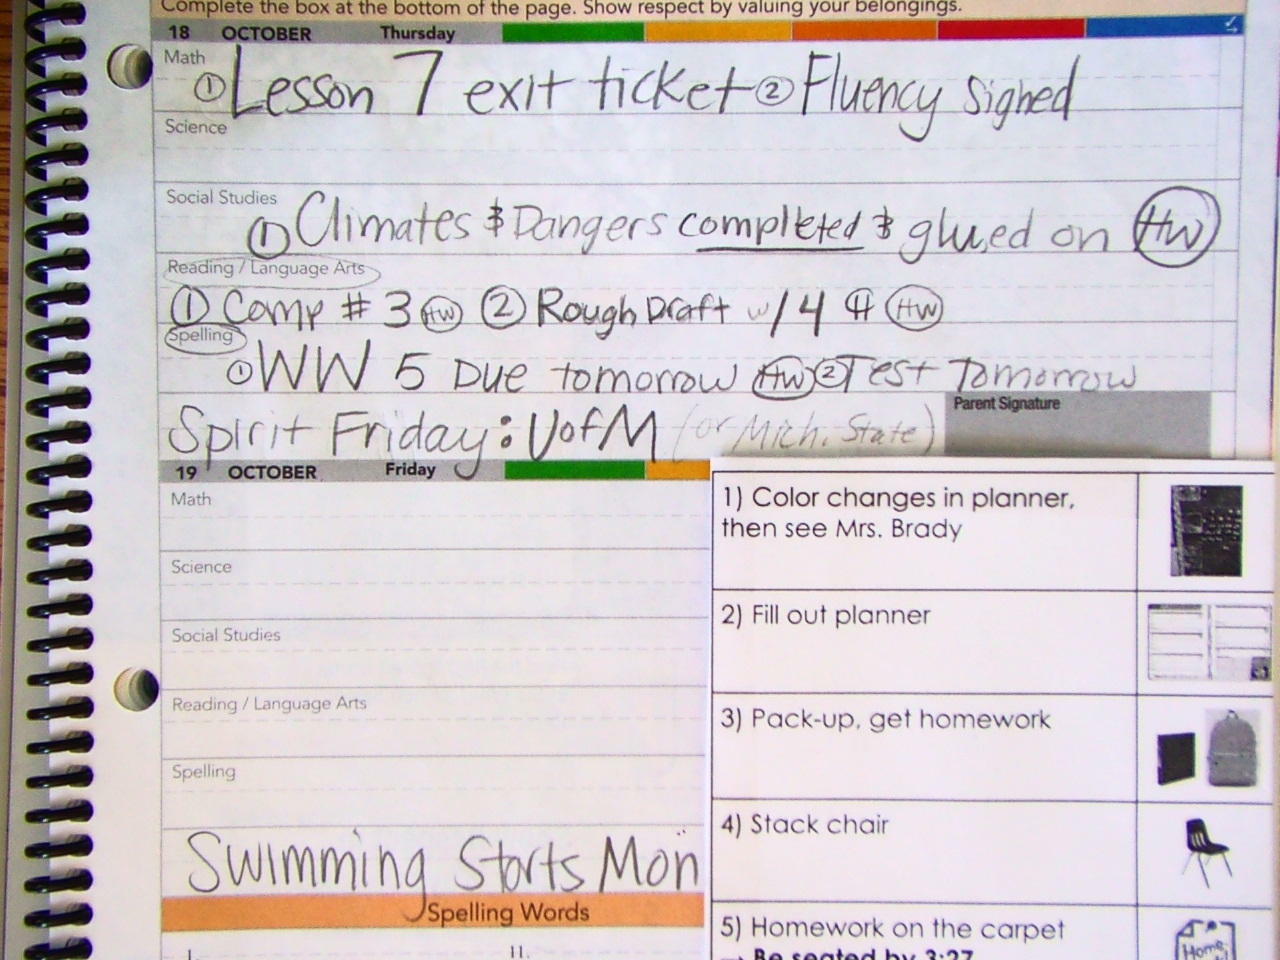 Complete the box at the bottom of the page. Show respect by valuing your belongings.
18 OCTOBER Thursday
Math
① Lesson 7 exit ticket ② Fluency Signed
Science
Social Studies
① Climates & Dangers completed & glued on HW
Reading / Language Arts
① Comp # 3 HW ② Rough Draft w/ 4 ¶ HW
Spelling
① WW 5 Due tomorrow HW ② Test Tomorrow
Spirit Friday: UofM (or Mich. State)
Parent Signature
19 OCTOBER Friday
Math
Science
Social Studies
Reading / Language Arts
Spelling
Swimming Starts Mon
Spelling Words
1. 11.
1) Color changes in planner,
then see Mrs. Brady
2) Fill out planner
3) Pack-up, get homework
4) Stack chair
5) Homework on the carpet
Be seated by 3:27
Home